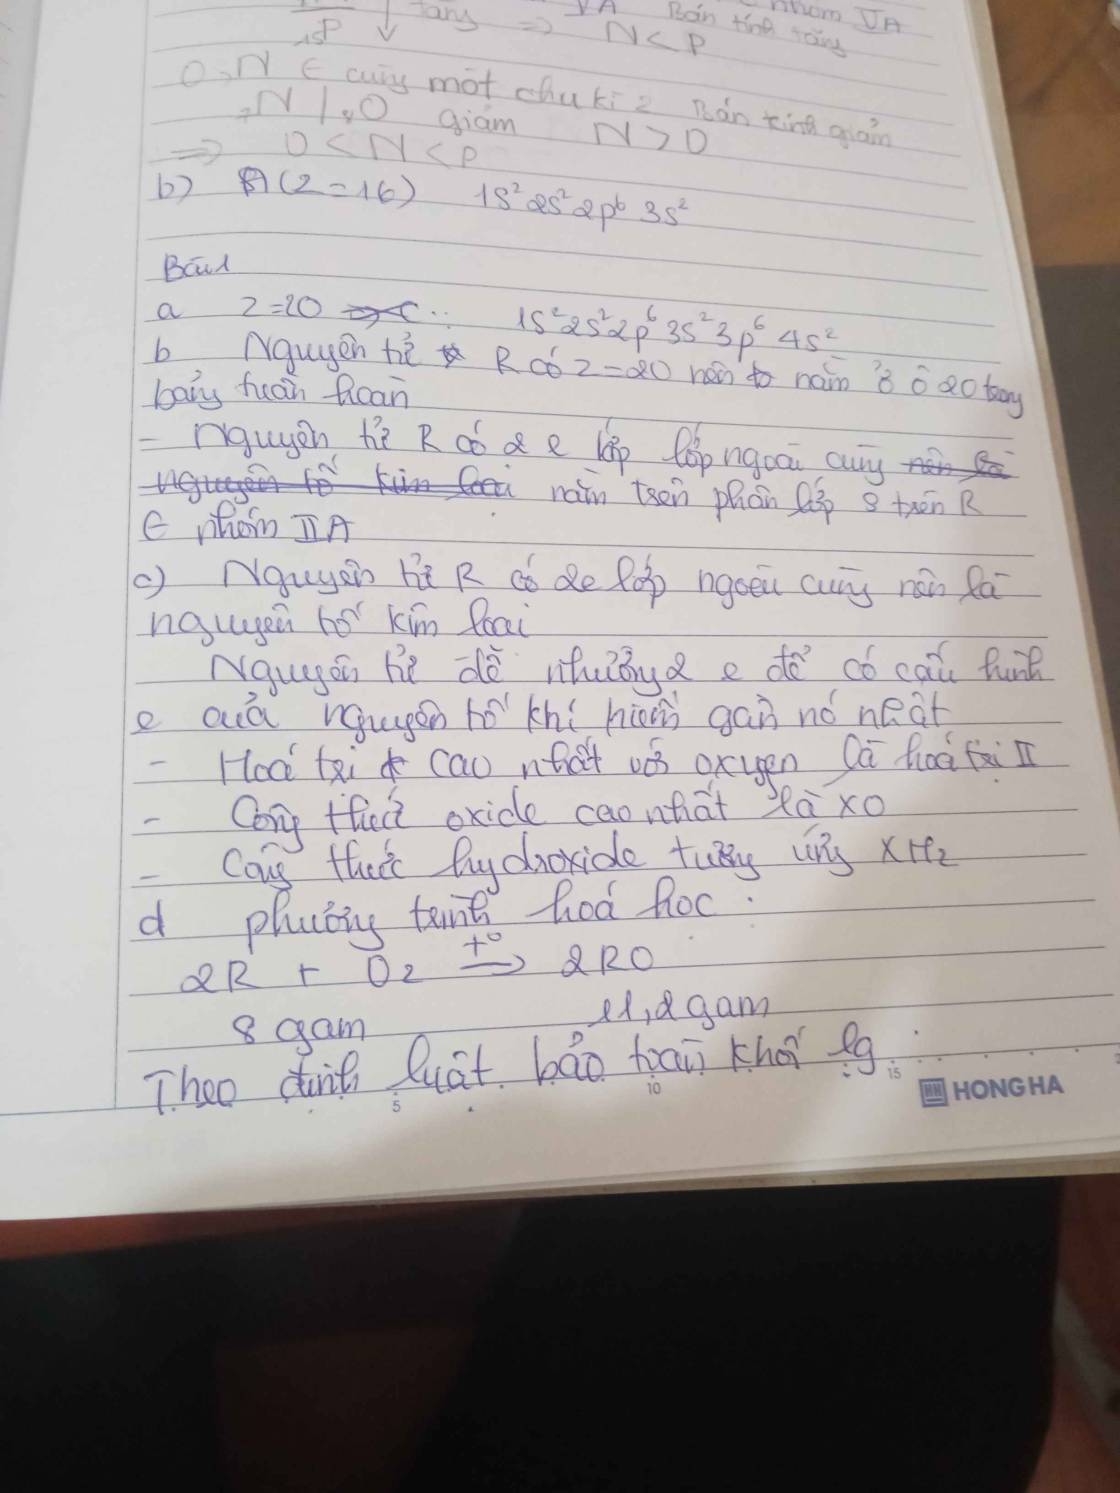 P ↓ tăng ⇒ VA Bán kính tăng nhóm VA
15P N < P
O, N ∈ cùng một chu kì 2 Bán kính giảm
7N | 8O giảm N > O
⇒ O < N < P
b) A (Z = 16) 1s² 2s² 2p⁶ 3s²
Bài 1
a Z = 20 1s² 2s² 2p⁶ 3s² 3p⁶ 4s²
b Nguyên tử R có Z = 20 nên nằm ở ô 20 trong
bảng tuần hoàn
- Nguyên tử R có 2 e lớp lớp ngoài cùng nên là
nguyên tố kim loại nằm trên phân lớp s trên R
∈ nhóm IIA
c) Nguyên tử R có 2e lớp ngoài cùng nên là
nguyên tố kim loại
Nguyên tử dễ nhường 2 e để có cấu hình
e của nguyên tố khí hiếm gần nó nhất
- Hoá trị cao nhất với oxygen là hoá trị II
- Công thức oxide cao nhất là XO
- Công thức hydroxide tương ứng XH₂
d phương trình hoá học :
2R + O₂ →(t⁰) 2RO
8 gam 11,2 gam
Theo định luật bảo toàn khối lg
5 10 15
HONG HA